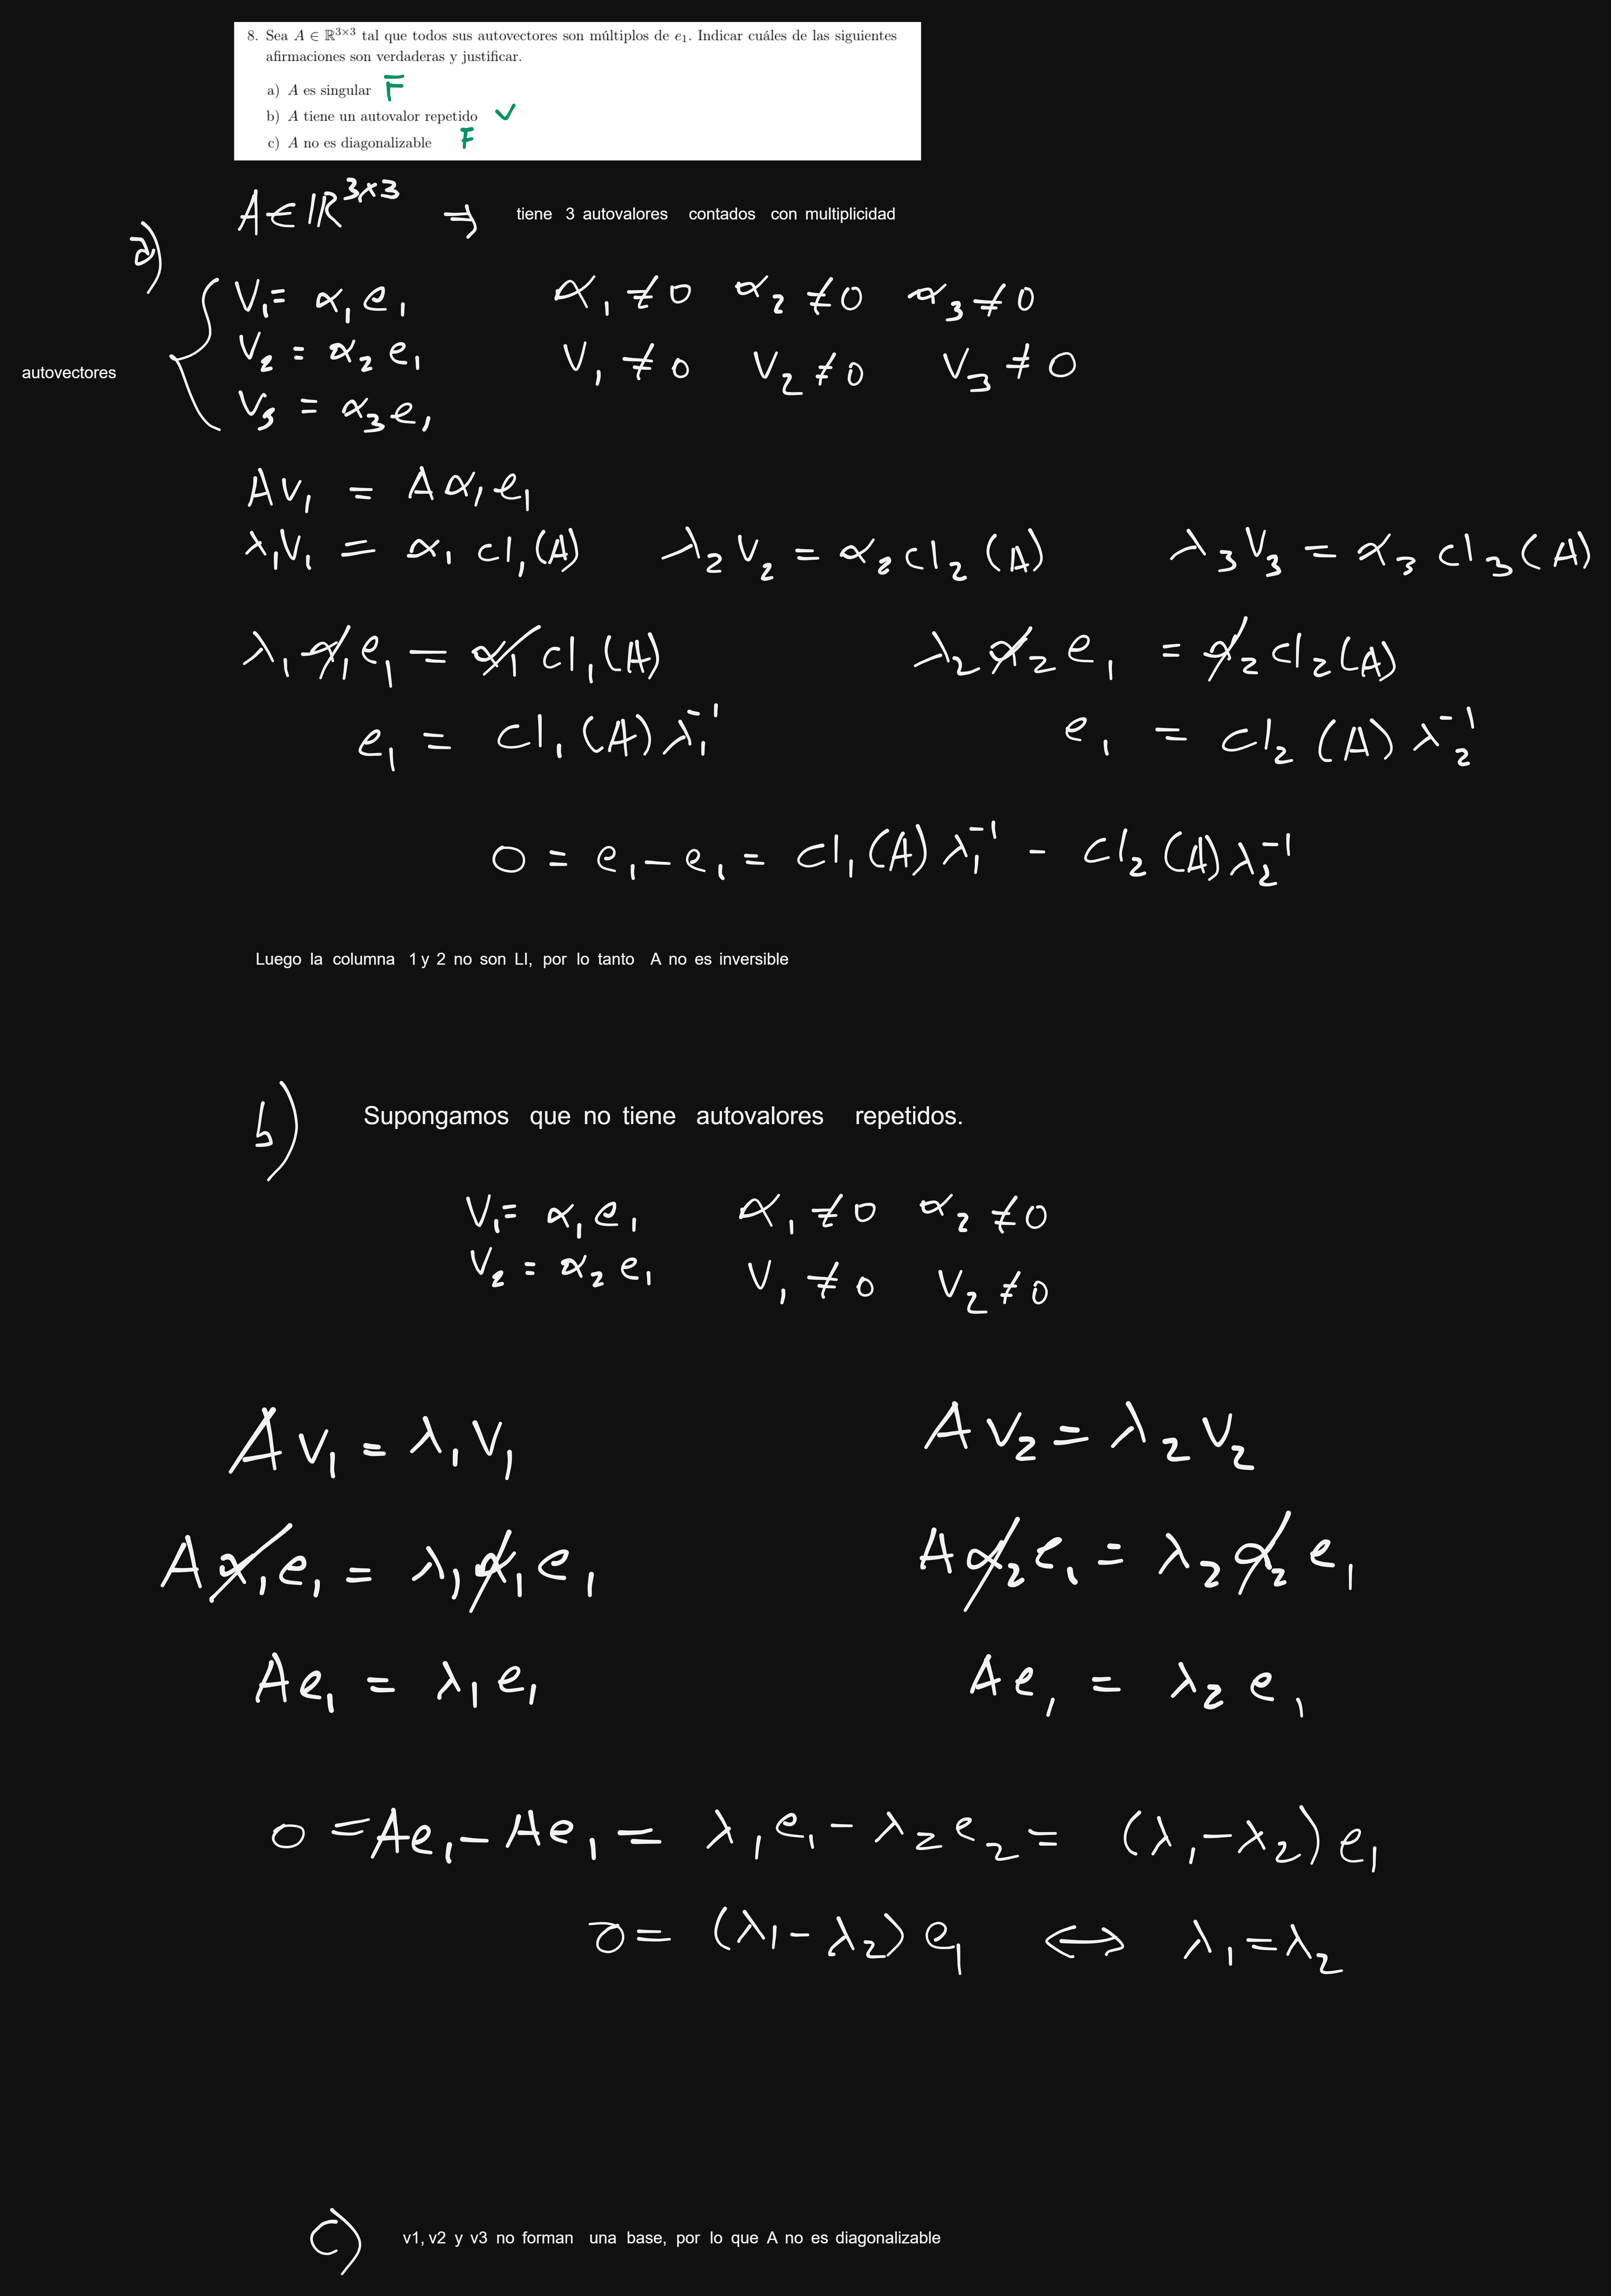 8. Sea A ∈ ℝ^{3×3} tal que todos sus autovectores son múltiplos de e₁. Indicar cuáles de las siguientes
afirmaciones son verdaderas y justificar.
a) A es singular F
b) A tiene un autovalor repetido V
c) A no es diagonalizable F
a)
A ∈ ℝ^{3×3} ⇒ tiene 3 autovalores contados con multiplicidad
autovectores {
V₁ = α₁ e₁ α₁ ≠ 0 α₂ ≠ 0 α₃ ≠ 0
V₂ = α₂ e₁ V₁ ≠ 0 V₂ ≠ 0 V₃ ≠ 0
V₃ = α₃ e₁
A V₁ = A α₁ e₁
λ₁V₁ = α₁ cl₁(A) λ₂V₂ = α₂ cl₂(A) λ₃V₃ = α₃ cl₃(A)
λ₁ α₁ e₁ = α₁ cl₁(A) λ₂ α₂ e₁ = α₂ cl₂(A)
e₁ = cl₁(A) λ₁⁻¹ e₁ = cl₂(A) λ₂⁻¹
0 = e₁ - e₁ = cl₁(A) λ₁⁻¹ - cl₂(A) λ₂⁻¹
Luego la columna 1 y 2 no son LI, por lo tanto A no es inversible
b) Supongamos que no tiene autovalores repetidos.
V₁ = α₁ e₁ α₁ ≠ 0 α₂ ≠ 0
V₂ = α₂ e₁ V₁ ≠ 0 V₂ ≠ 0
A V₁ = λ₁ V₁ A V₂ = λ₂ V₂
A α₁ e₁ = λ₁ α₁ e₁ A α₂ e₁ = λ₂ α₂ e₁
A e₁ = λ₁ e₁ A e₁ = λ₂ e₁
0 = Ae₁ - Ae₁ = λ₁e₁ - λ₂e₂ = (λ₁ - λ₂) e₁
0 = (λ₁ - λ₂) e₁ ⟷ λ₁ = λ₂
c) v1, v2 y v3 no forman una base, por lo que A no es diagonalizable